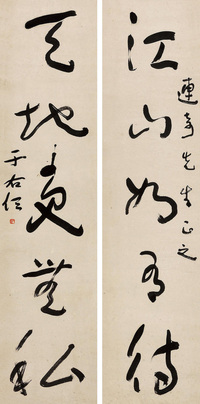 江山如有待
連奇先生正之
天地更無私
于右任